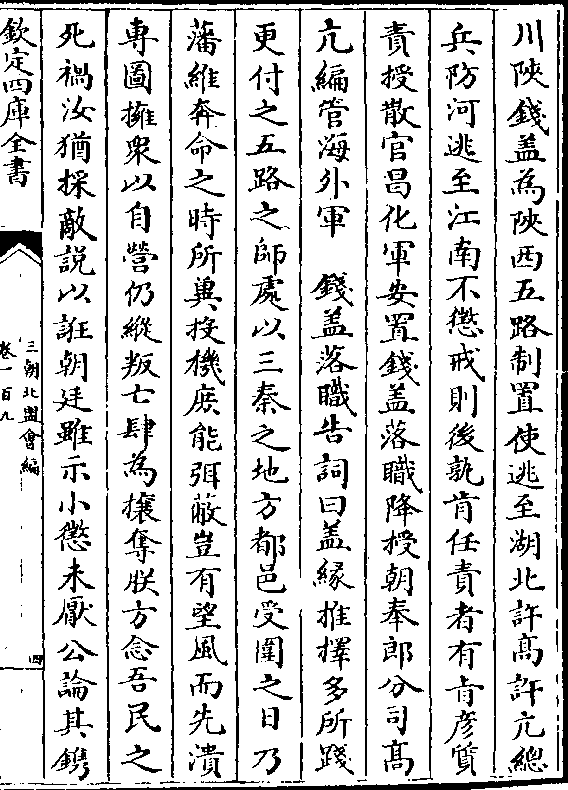 川陜錢盖為陜西五路制置使逃至湖北許髙許亢總
兵防河逃至江南不懲戒則後孰肯任責者有㫖彥質
責授散官昌化軍安置錢盖落職降授朝奉郎分司髙
亢編管海外軍　錢盖落職告詞曰盖緣推擇多所踐
更付之五路之師處以三秦之地方都邑受圍之日乃
藩維奔命之時所兾投機庻能弭蔽豈有望風而先潰
専圖擁衆以自營仍縱叛亡肆為攘奪朕方念吾民之
死禍汝猶採敵説以誑朝廷雖示小懲未厭公論其鐫
欽定四庫全書
三朝北盟會編
卷一百九
四